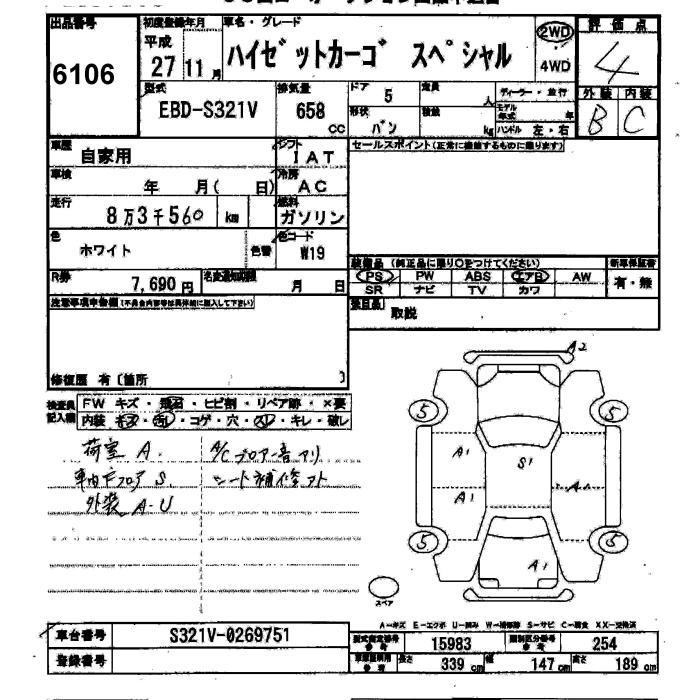 出品番号
6106
初度登録年月
平成
27 11 月
車名・グレード
ハイゼットカーゴ スペシャル
2WD
4WD
評価点
4
外装 内装
B C
型式
EBD-S321V
排気量
658
cc
ドア
5
形状
バン
定員
人
積載
kg
ディーラー・並行
モデル年式 年
ハンドル 左・右
車歴
自家用
シフト
IAT
車検
年 月( 日)
冷房
AC
走行
8万3千560 km
燃料
ガソリン
色
ホワイト
色替
色コード
W19
R券
7,690 円
名変通知期限
月 日
セールスポイント(正常に機能するものに限ります)
装備品 (純正品に限り○をつけてください)
新車保証書
PS PW ABS エアB AW
SR ナビ TV カワ
有・無
取説
注意事項申告欄
修復歴 有〔箇所 〕
検査員記入欄
FW キズ・飛石・ヒビ割・リペア跡・×要
内装 キズ・汚レ・コゲ・穴・スレ・キレ・破レ
荷室 A. A/C ブロアー音アリ
車内フロア S. シート補修アト
外装 A・U
A2
5 5
A1 S1
A1 A1
5 5
A1
スペア
A-キズ E-エクボ U-凹み W-補修跡 S-サビ C-腐食 XX-交換済
車台番号
S321V-0269751
登録番号
型式指定番号
参考
15983
類別区分番号
参考
254
長さ 339 cm 幅 147 cm 高さ 189 cm